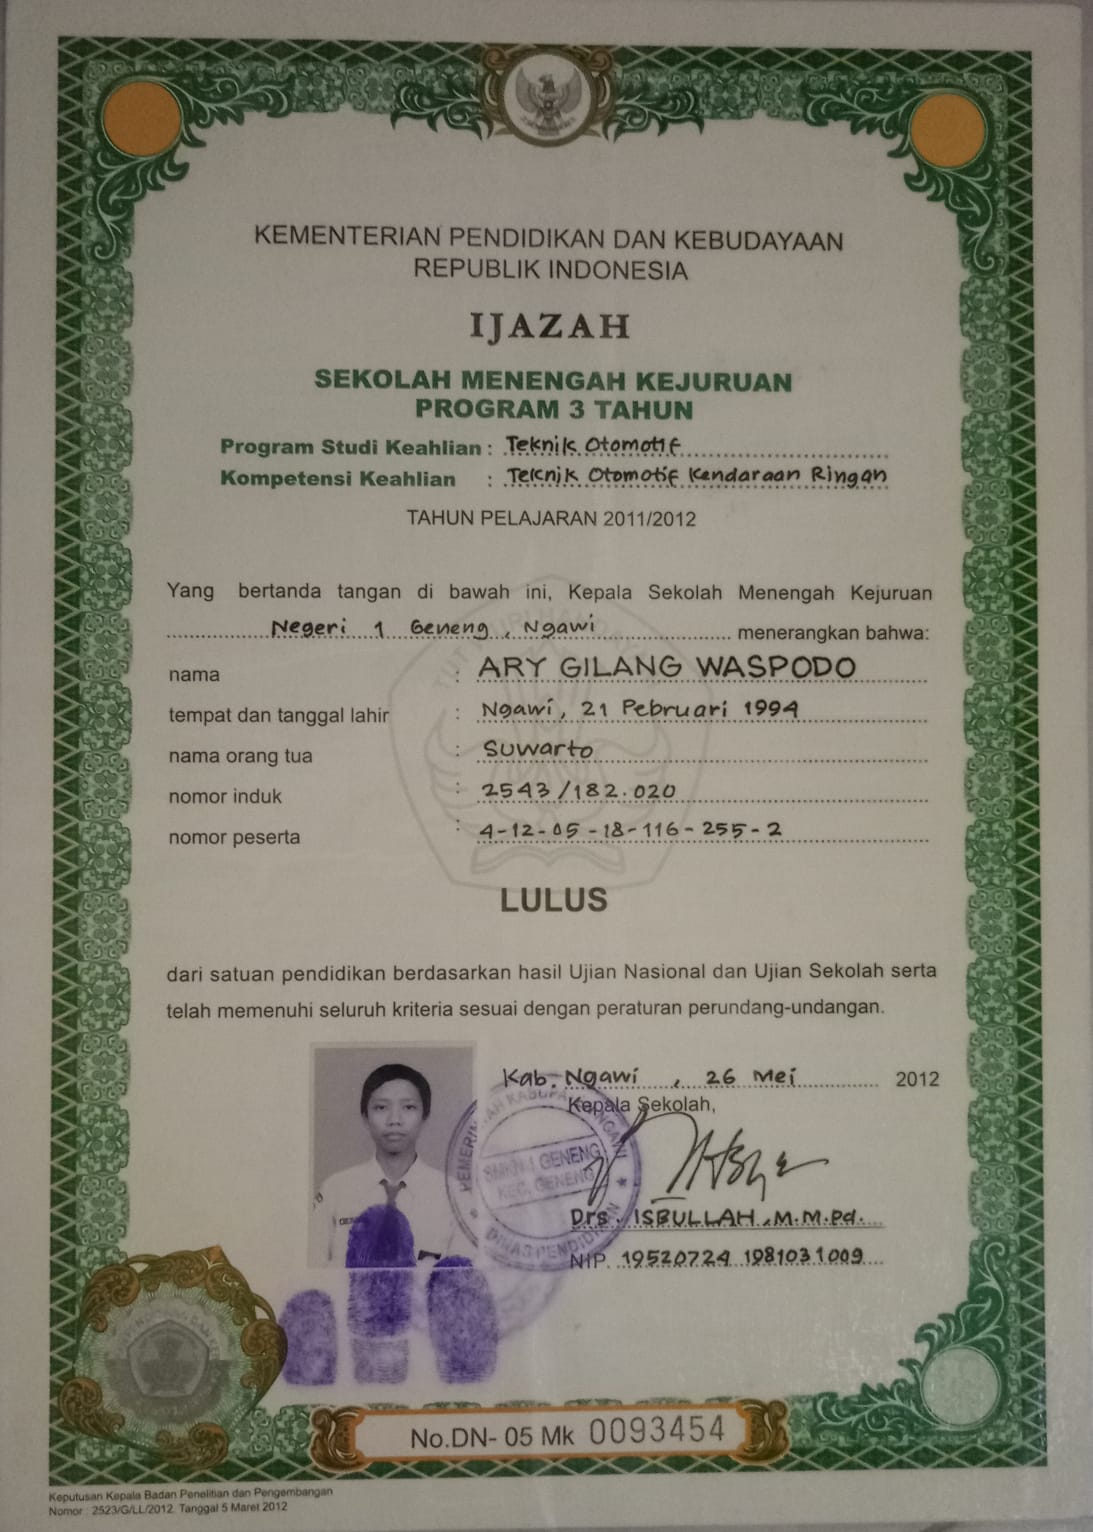 KEMENTERIAN PENDIDIKAN DAN KEBUDAYAAN
REPUBLIK INDONESIA
IJAZAH
SEKOLAH MENENGAH KEJURUAN
PROGRAM 3 TAHUN
Program Studi Keahlian : Teknik Otomotif
Kompetensi Keahlian : Teknik Otomotif Kendaraan Ringan
TAHUN PELAJARAN 2011/2012
Yang bertanda tangan di bawah ini, Kepala Sekolah Menengah Kejuruan
Negeri 1 Geneng, Ngawi menerangkan bahwa:
nama : ARY GILANG WASPODO
tempat dan tanggal lahir : Ngawi, 21 Pebruari 1994
nama orang tua : Suwarto
nomor induk : 2543/182.020
nomor peserta : 4-12-05-18-116-255-2
LULUS
dari satuan pendidikan berdasarkan hasil Ujian Nasional dan Ujian Sekolah serta
telah memenuhi seluruh kriteria sesuai dengan peraturan perundang-undangan.
Kab. Ngawi, 26 Mei 2012
Kepala Sekolah,
PEMERINTAH KABUPATEN NGAWI
SMKN 1 GENENG
KEC. GENENG
DINAS PENDIDIKAN
Drs. ISBULLAH, M.M.Pd.
NIP. 19520724 1981031009
No.DN- 05 Mk 0093454
Keputusan Kepala Badan Penelitian dan Pengembangan
Nomor : 2523/G/LL/2012. Tanggal 5 Maret 2012